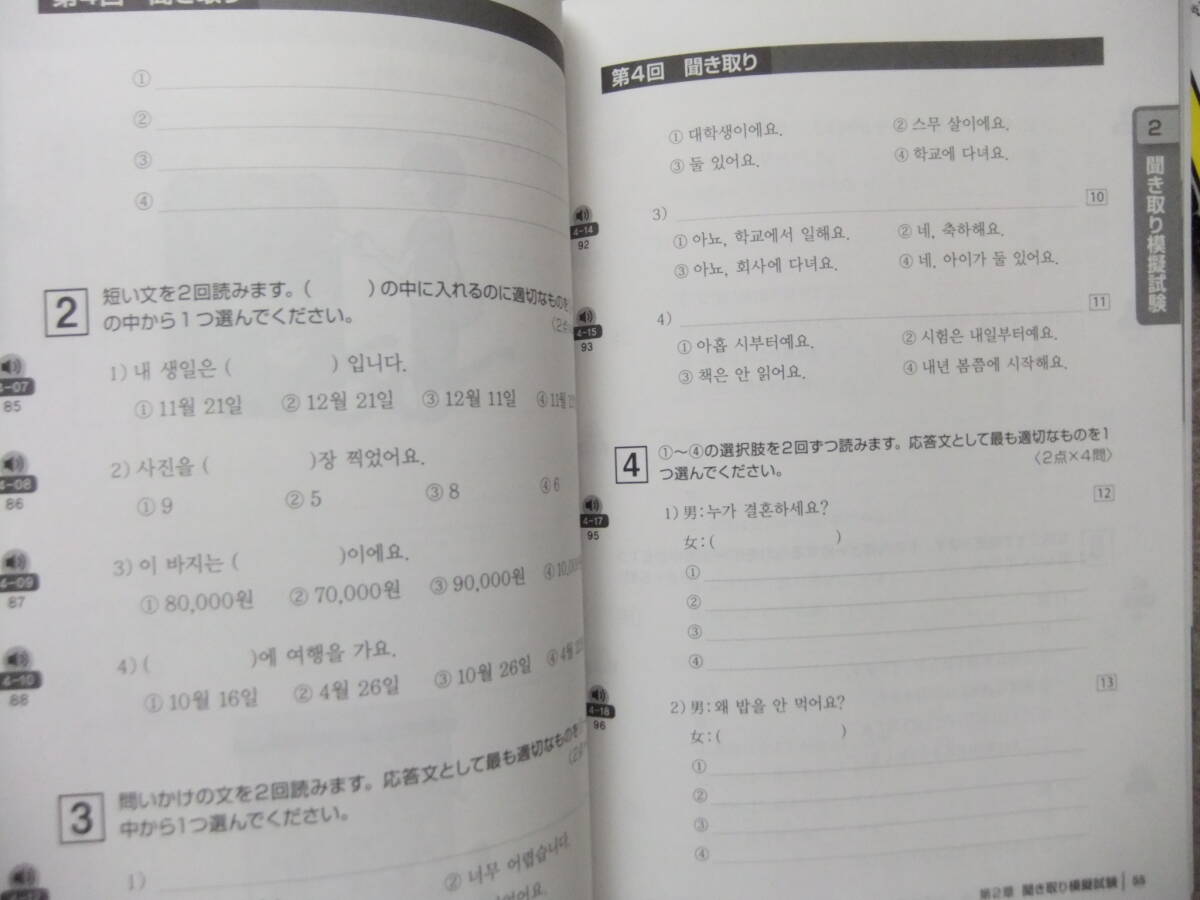 第4回 聞き取り
①
②
③
④
2 短い文を2回読みます。( )の中に入れるのに適切なものを
の中から1つ選んでください。
〈2点
4-07
85
1) 내 생일은 ( ) 입니다.
① 11월 21일 ② 12월 21일 ③ 12월 11일 ④ 11월
4-08
86
2) 사진을 ( )장 찍었어요.
① 9 ② 5 ③ 8 ④ 6
4-09
87
3) 이 바지는 ( )이에요.
① 80,000원 ② 70,000원 ③ 90,000원 ④
4-10
88
4) ( )에 여행을 가요.
① 10월 16일 ② 4월 26일 ③ 10월 26일 ④ 4월
3 問いかけの文を2回読みます。応答文として最も適切なものを
中から1つ選んでください。
1)
② 너무 어렵습니다.
第4回 聞き取り
① 대학생이에요. ② 스무 살이에요.
③ 둘 있어요. ④ 학교에 다녀요.
4-14
92
3) 10
① 아뇨, 학교에서 일해요. ② 네, 축하해요.
③ 아뇨, 회사에 다녀요. ④ 네, 아이가 둘 있어요.
4-15
93
4) 11
① 아홉 시부터예요. ② 시험은 내일부터예요.
③ 책은 안 읽어요. ④ 내년 봄쯤에 시작해요.
4 ①〜④の選択肢を2回ずつ読みます。応答文として最も適切なものを1
つ選んでください。 〈2点×4問〉
4-17
95
1) 男:누가 결혼하세요? 12
女:( )
①
②
③
④
4-18
96
2) 男:왜 밥을 안 먹어요? 13
女:( )
①
②
③
④
2 聞き取り模擬試験
第2章 聞き取り模擬試験 55